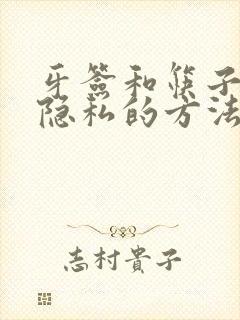 牙签和筷子
隐私的方法
志村貴子